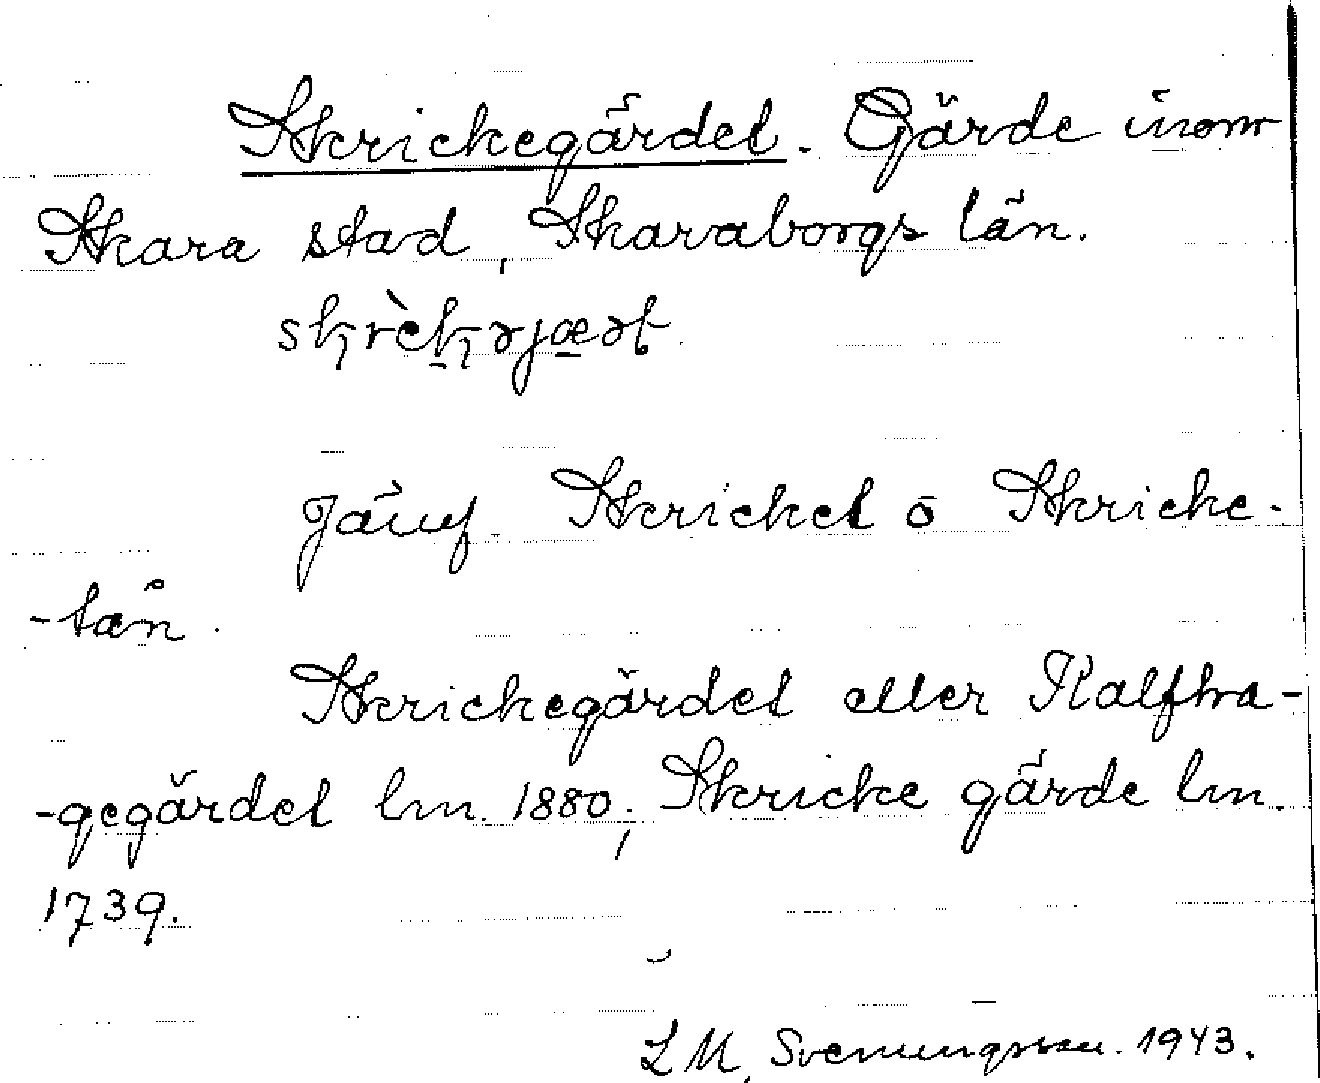 Skrickegärdet. Gärde inom
Skara stad, Skaraborgs län.
Jämf. Skricket o Skricke-
-tån.
Skrickegärdet eller Kalfha-
-gegärdet lm. 1880; Skricke gärde lm.
1739.
L M. Svenungsson. 1943.